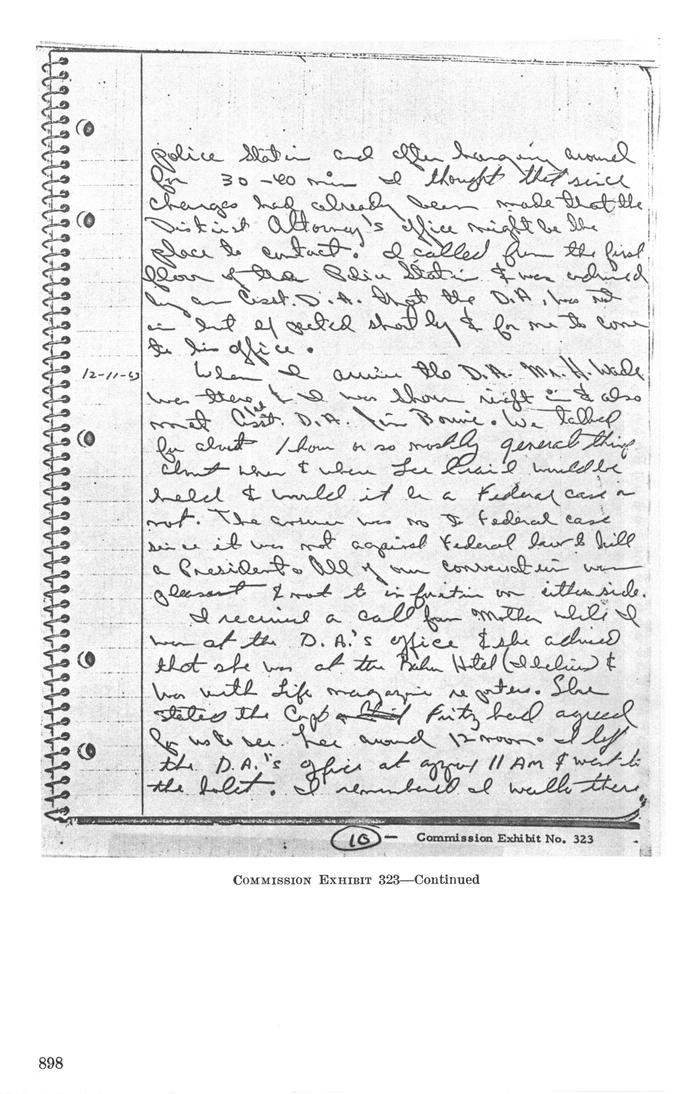 police Station and after hanging around
for 30-40 min I thought that since
charges had already been made that the
District Attorney's office might be the
place to contact. I called from the first
floor of the Police Station & was advised
by an Asst. D.A. that the D.A. was not
in but expected shortly & for me to come
to his office.
12-11-63
When I arrive the D.A. Mr. H. Wade
was there & I was shown right in & also
met Asst. D.A. Jim Bowie. We talked
for about 1 hour or so mostly general things
about when & where Lee would be
held & would it be a Federal case or
not. The answer was no to Federal case
since it was not against Federal law to kill
a President. All of our conversation was
pleasant & not to in on either side.
I received a call from Mother while I
was at the D.A.'s office & she advised
that she was at the Hotel (I believe) &
was with Life magazine reporters. She
stated the Capt Fritz had agreed
for us to see Lee around 12 noon. I left
the D.A.'s office at approx 11 AM & went to
the hotel. I remembered I walk there
10 - Commission Exhibit No. 323
COMMISSION EXHIBIT 323—Continued
898